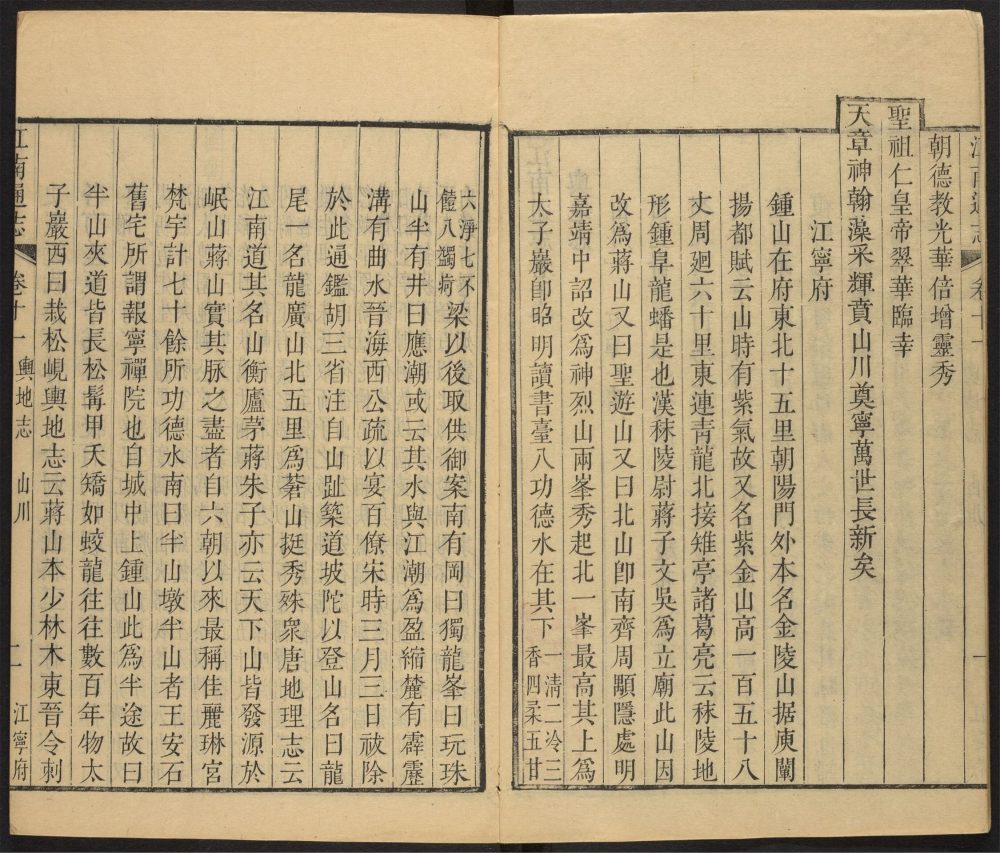 江南通志 卷十一 一
朝德教光華倍增靈秀
聖祖仁皇帝翠華臨幸
天章神翰藻采輝賁山川奠寧萬世長新矣
江寧府
鍾山在府東北十五里朝陽門外本名金陵山据庾闡
揚都賦云山時有紫氣故又名紫金山高一百五十八
丈周廻六十里東連青龍北接雉亭諸葛亮云秣陵地
形鍾阜龍蟠是也漢秣陵尉蔣子文吳爲立廟此山因
改爲蔣山又曰聖遊山又曰北山卽南齊周顒隱處明
嘉靖中詔改爲神烈山兩峯秀起北一峯最高其上爲
太子巖卽昭明讀書臺八功德水在其下一清二冷三香四柔五甘
六淨七不饐八蠲疴梁以後取供御案南有岡曰獨龍峯曰玩珠
山半有井曰應潮或云其水與江潮爲盈縮麓有霹靂
溝有曲水晉海西公疏以宴百僚宋時三月三日祓除
於此通鑑胡三省注自山趾築道坡陀以登山名曰龍
尾一名龍廣山北五里爲蒼山挺秀殊衆唐地理志云
江南道其名山衡廬茅蔣朱子亦云天下山皆發源於
岷山蔣山實其脉之盡者自六朝以來最稱佳麗琳宮
梵宇計七十餘所功德水南曰半山墩半山者王安石
舊宅所謂報寧禪院也自城中上鍾山此爲半途故曰
半山夾道皆長松髯甲夭矯如蛟龍往往數百年物太
子巖西曰栽松峴輿地志云蔣山本少林木東晉令刺
江南通志 卷十一 輿地志 山川 二 江寧府